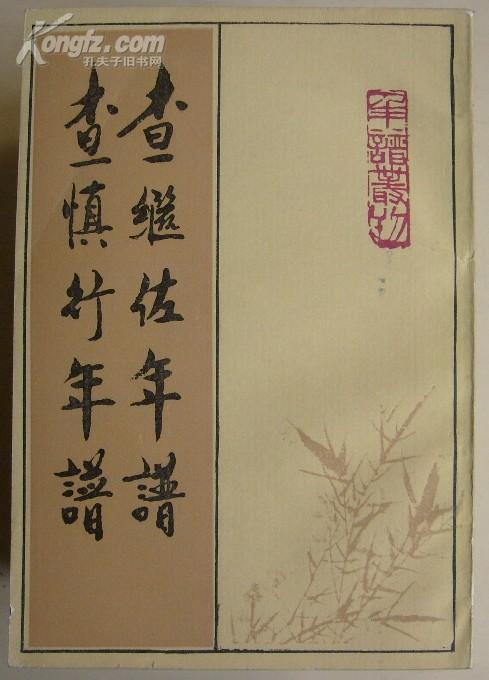 查继佐年譜
查慎行年譜
年譜叢刊
Kongfz.com
孔夫子旧书网